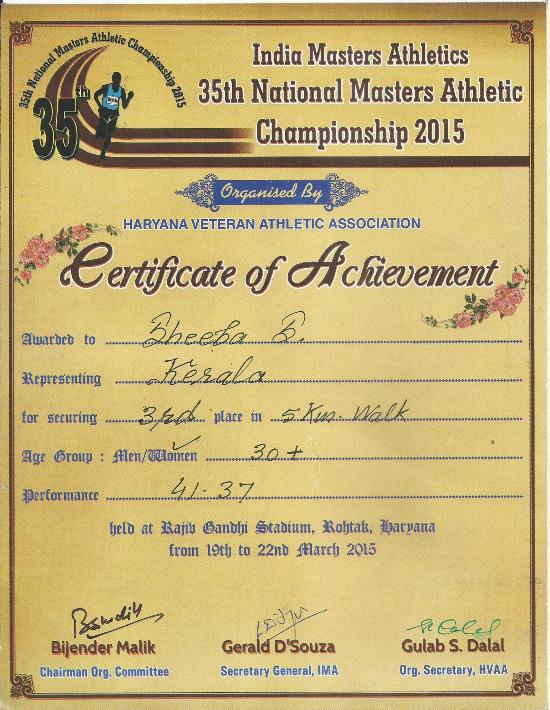 35th National Masters Athletic Championship 2015
35th
India Masters Athletics
35th National Masters Athletic
Championship 2015
Organised By
HARYANA VETERAN ATHLETIC ASSOCIATION
Certificate of Achievement
Awarded to Sheeba S.
Representing Kerala
for securing 3rd place in 5 Km. Walk
Age Group : Men/Women 30+
Performance 41.37
held at Rajiv Gandhi Stadium, Rohtak, Haryana
from 19th to 22nd March 2015
Bijender Malik Gerald D'Souza Gulab S. Dalal
Chairman Org. Committee Secretary General, IMA Org. Secretary, HVAA